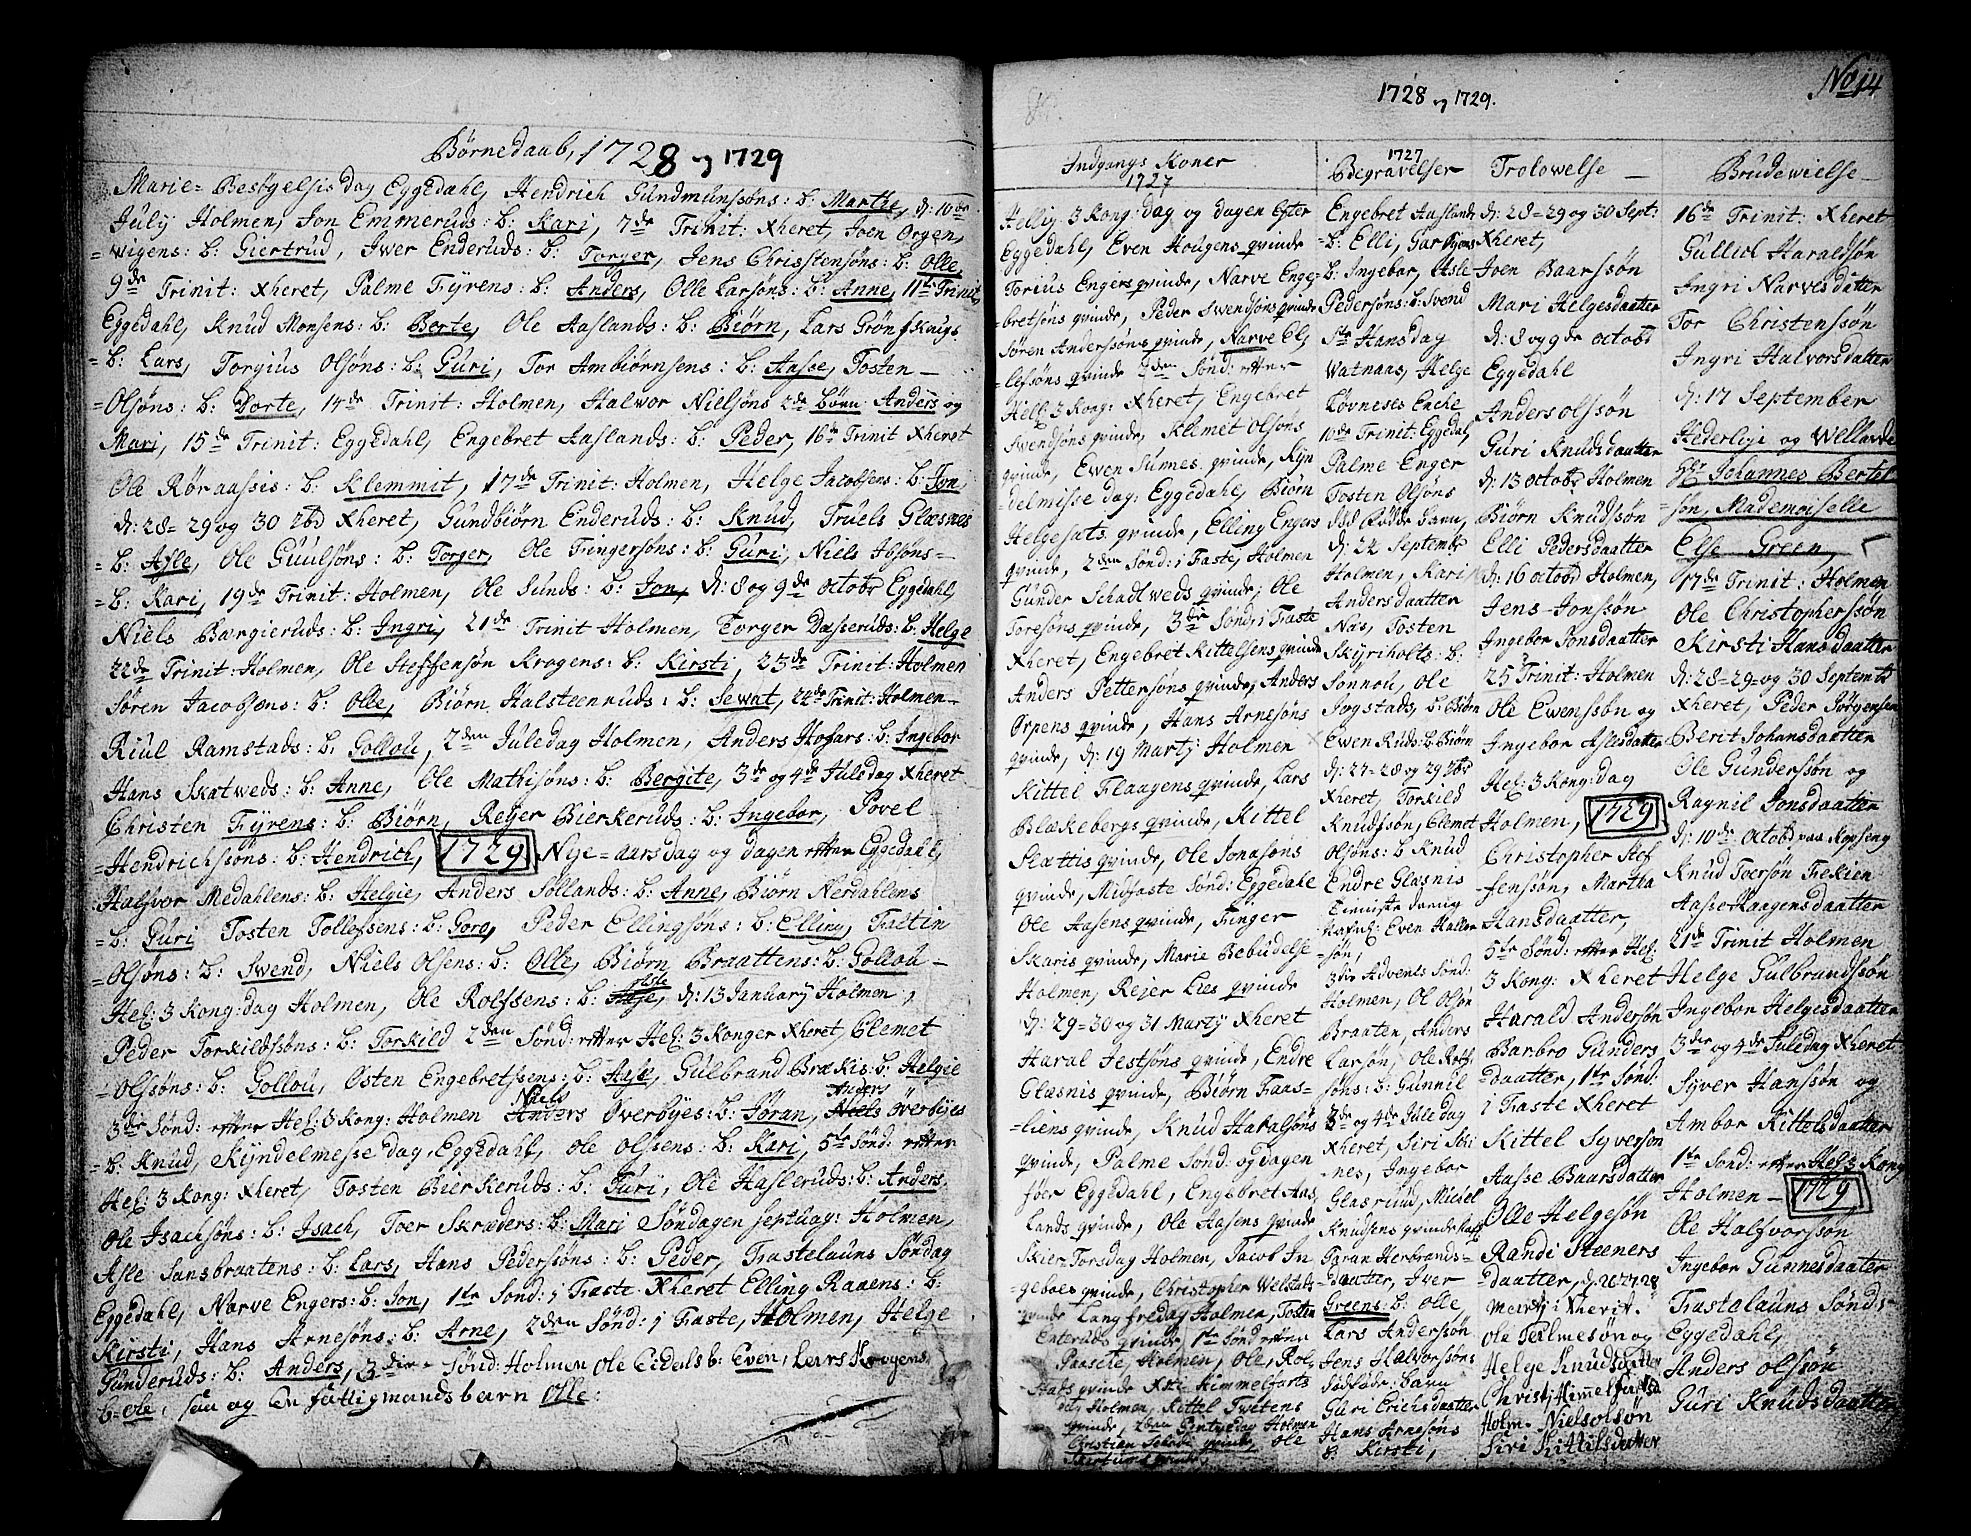 Børnedaab, 1728 og 1729
Marie= Besøgelsis dag Eggedahl, Hendrich Gundmunssøns: b: Marthe, d: 10de
July Holmen, Jon Emmeruds: b: Kari, 7de Trinit: Xheret, Joen Orgen,
=wigens: b: Giertrud, Iwer Enderuds: b: Torger, Jens Christensøns: b: Olle,
9de Trinit: Xheret, Palme Fyrens: b: Anders, Olle Larsøns: b: Anne, 11te Trinit,
Eggedahl, Knud Monsens: b: Berte, Ole Aaslands: b: Biørn, Lars Grønfskaugs
=b: Lars, Torgius Olsøns: b: Guri, Tor Ambiørnsens: b: Aasse, Tosten –
=Olsøns: b: Dorte, 14de Trinit: Holmen, Halwor Nielsøns 2de børn Anders og
Mari, 15de Trinit: Eggedahl, Engebret Aaslands: b: Peder, 16de Trinit Xheret
Ole Røraassis: b: Klemmit, 17de Trinit: Holmen, Helge Jacobsens: b: Jon,
d: 28= 29 og 30 7bd Xheret, Gundbiørn Enderuds: b: Knud, Truels Glæsnes
=b: Asle, Ole Guulsøns: b: Torger, Ole Tringersøns: b: Guri, Niels Ibsøns=
=b: Kari, 19de Trinit: Holmen, Ole Sunds: b: Jon, d: 8 og 9de octobr Eggedahl,
Niels Bærgieruds: b: Ingri, 21de Trinit Holmen, Torger Dæsseruds: b: Helge
22de Trinit: Holmen, Ole Steffensøn Krogens: b: Kirsti, 23de Trinit: Holmen
Søren Jacobsens: b: Olle, Biørn Halsteenruds: b: Sewat, 24de Trinit: Holmen–
Riul Ramstads: b: Gollou, 2den Juledag Holmen, Anders Hofars: b: Ingebor
Hans Skatweds: b: Anne, Ole Mathisøns: b: Bergite, 3de og 4de Julsdag Xheret
Christen Fyrens: b: Biørn, Rejer Bierkeruds: b: Ingebor, Povel
=Hendrichsøns: b: Hendrich, 1729 Nye=aarsdag og dagen efter Eggedahl,
Halfvor Medahlens: b: Helgie, Anders Sollands: b: Anne, Biørn Nerdahlens
=b: Guri Tosten Tollefsens: b: Goro, Peder Ellingsøns: b: Elling, Faltin
=Olsøns: b: Swend, Niels Olsens: b: Olle, Biørn Braattens: b: Gollou –
Hel: 3 Kong: dag Holmen, Ole Rolfsens: b: d: 13 January Holmen,
Peder Torkildssøns: b: Torkild 2den Sønd: efter Hel: 3 Konger Xheret, Clemet
=Olsøns: b: Gollou, Osten Engebretssens: b: Aase, Gulbrand Brækis: b: Helgie
3die Sønd: efter Hel: 3 Kong: Holmen Niels Anders Overbyes: b: Søran, Anders Niels overbyes
=b: Knud, Kyndelmesse dag, Eggedahl, Ole Olssens: b: Kari, 5te Sønd: efter
Hel: 3 Kong: Xheret, Tosten Bierkeruds: b: Turi, Ole Hasleruds: b: Anders,
Ole Isachsøns: b: Isach, Toer Skruders: b: Mari Søndagen septuag: Holmen,
Asle Sansbraatens: b: Lars, Hans Pedersøns: b: Peder, Fastelauns Søndag
Eggedahl, Narve Engers: b: Jon, 1te Sønd: j Faste Xheret Elling Raaens: b:
Kirsti, Hans Arnesøns: b: Arne, 2den Sønd: j Faste, Holmen, Helge
Gunderuds: b: Anders, 3die Sønd: Holmen Ole Eidals b: Even, Lars Krogens
b: ole, saa og En fattigmands barn Olle:
1728 og 1729.
No 14
Indgangs Koner
1727
Hellig 3 Kong: dag og dagen Efter
Eggedahl, Even Hougens qvinde
Torius Engers qvinde, Narve Enge=
=bretsøns qvinde, Peder Swendsøns qvinde
Søren Anderssøns qvinde, Narve El,
=lefsøns qvinde 2den Sønd: efter
Hell: 3 Kong: Xheret, Engebret
Swendsøns qvinde, Klemet Olsøns
qvinde, Ewen Sunnes qvinde, Kyn
=delmisse dag: Eggedahl, Biørn
Helgesats qvinde, Elling Engers
qvinde, 2den Sønd: i Faste, Holmen
Gunder Schadtweds qvinde, Ole
Toresøns qvinde, 3die Sønd: i Faste
Xheret, Engebret Kittelsens qvinde
Anders Pettersøns qvinde, Anders
Orpens qvinde, Hans Arnesøns
qvinde, d: 19 Martj Holmen
Kittel Flaagens qvinde, Lars
Blækebergs qvinde, Kittel
Slættis qvinde, Ole Jonasøns
qvinde, Midfaste Sønd: Eggedahl
Ole Aasens qvinde, Tinger
Skaris qvinde, Marie Bebudelse
Holmen, Rejer Lies qvinde
d: 29= 30 og 31 Marty Xheret
Haral Jestsøns qvinde, Endre
Glasnis qvinde, Biørn Faas=
=liens qvinde, Knud Haralsøns
qvinde, Palme Sønd: og dagen
føer Eggedahl, Engebret Aas,
lands qvinde, Ole Aasens qvinde
Skier=Torsdag Holmen, Jacob In
=geboes qvinde, Christopher Welstads
qvinde Lang fredag Holmen, Tosten
Enteruds qvinde, 1te Sønd efter
Paaske, Holmen, Ole, Rol,
stads qvinde Xsti Himmelfarts
da, Holmen, Kittel Twetens
qvinde, 2den Pintzedag Holmen
Christian Schade qvinde, Ole
Skartums qvinde,
1727
Begravelser
Engebret Aaslands
=b: Elli,
b: Ingebor, Asle
Pedersøns: b: Svend
Ste Hansdag
Watnaas, Helge
Løvneses Encke
10de Trinit: Eggedal
Palme Enger
Tosten Olsøns
død fødde barn,
d: 24 Septembr
Holmen, Kari
Andersdaatter
Næs, Tosten
Skyriholts: b:
Sonnou, Ole
Jogstads, b: Biørn
Ewen Ruds: b: Biørn
d: 27=28 og 29 7br
Xheret, Torkild
Knudssøn, Clemet
Olsøns: b: Knud
Endre Glasnis
Tieniste dreng
Nafnl: Even Haller
søn,
3die Advents Sønd:
Holmen, Ol Olsøn
Braaten, Anders
Larsøn, Ole Rolf,
søns: b: Gunnil
3de og 4de Jule dag
Xheret, Siri Ski
nes, Ingebor
Glasruud, Michel
Knudsens qvinde
Taran Herbrands=
=daatter, Iver
Greens: b: Olle,
Lars Anderssøn
Jens Halvorssøns
dødføde: barn
Guri Erichsdaatter
Hans Arnesøns
b: Kirsti,
Trolowelse –
d: 28=29 og 30 Sept:
Xheret,
Joen Baarssøn
Mari Helgesdaatter
d: 8 og 9de octobr
Eggedahl
Anders olssøn
Guri Knudsdaatter
d: 13 octobr Holmen
Biørn Knudssøn
Elli Pedersdaatter
d: 16 octobr Holmen,
Jens Jonssøn
Ingebor Jonsdaatter
25 Trinit: Holmen
Ole Ewenssøn og
Ingebor Aslesdatter
Hel: 3 Kong: dag
Holmen, 1729
Christopher Stef
=fenssøn, Martha
Hansdaatter,
5te Sønd: efter Hel:
3 Kong: Xheret
Harald Andersøn
Barbro Gunders
=daatter, 1te Sønd:
i Faste Xheret
Kittel Syversøn
Aasse Baarsdatter
Olle Helgesøn
Randi Steeners
=daatter, d: 26 27 28
Mertj i Xherit.
Ole Palmesøn og
Helge Knudsdatter
Christj Himmelfartsd
Holm. Niels olsøn
Siri Kittilsdatter
Brudewielse –
16de Trinit: Xheret
Gullich Haraldsøn
Ingri Narvesdatter
Tor Christenssøn
Ingri Halvorsdatter
d: 17 September
Hederlige og Wellærde
Hr Johannes Bertel
=søn, Mademoiselle
Else Green,
17de Trinit: Holmen
Ole Christopherssøn
Kirsti Hansdaatter
d: 28=29= og 30 Septembr
Xheret, Peder Jørgensen
Berit Johansdaatter
Ole Gunderssøn og
Ragnil Jonsdaatter
d: 10de: Octobr paa Kopseng
Knud Toersøn Trekien
Aasse Haagensdaatter
21de Trinit Holmen
Helge Gulbrandssøn
Ingebor Helgesdaatter
3die og 4de Juledag Xheret
Syver Hanssøn og
Ambor Kittelsdaatter
1te Sønd: efter Hel 3 Kong
Holmen – 1729
Ole Halfvorssøn
Ingebor Gunnesdaatter
Fastelauns Sønd:
Eggedahl,
Anders olssøn
Guri Knudsdaatter